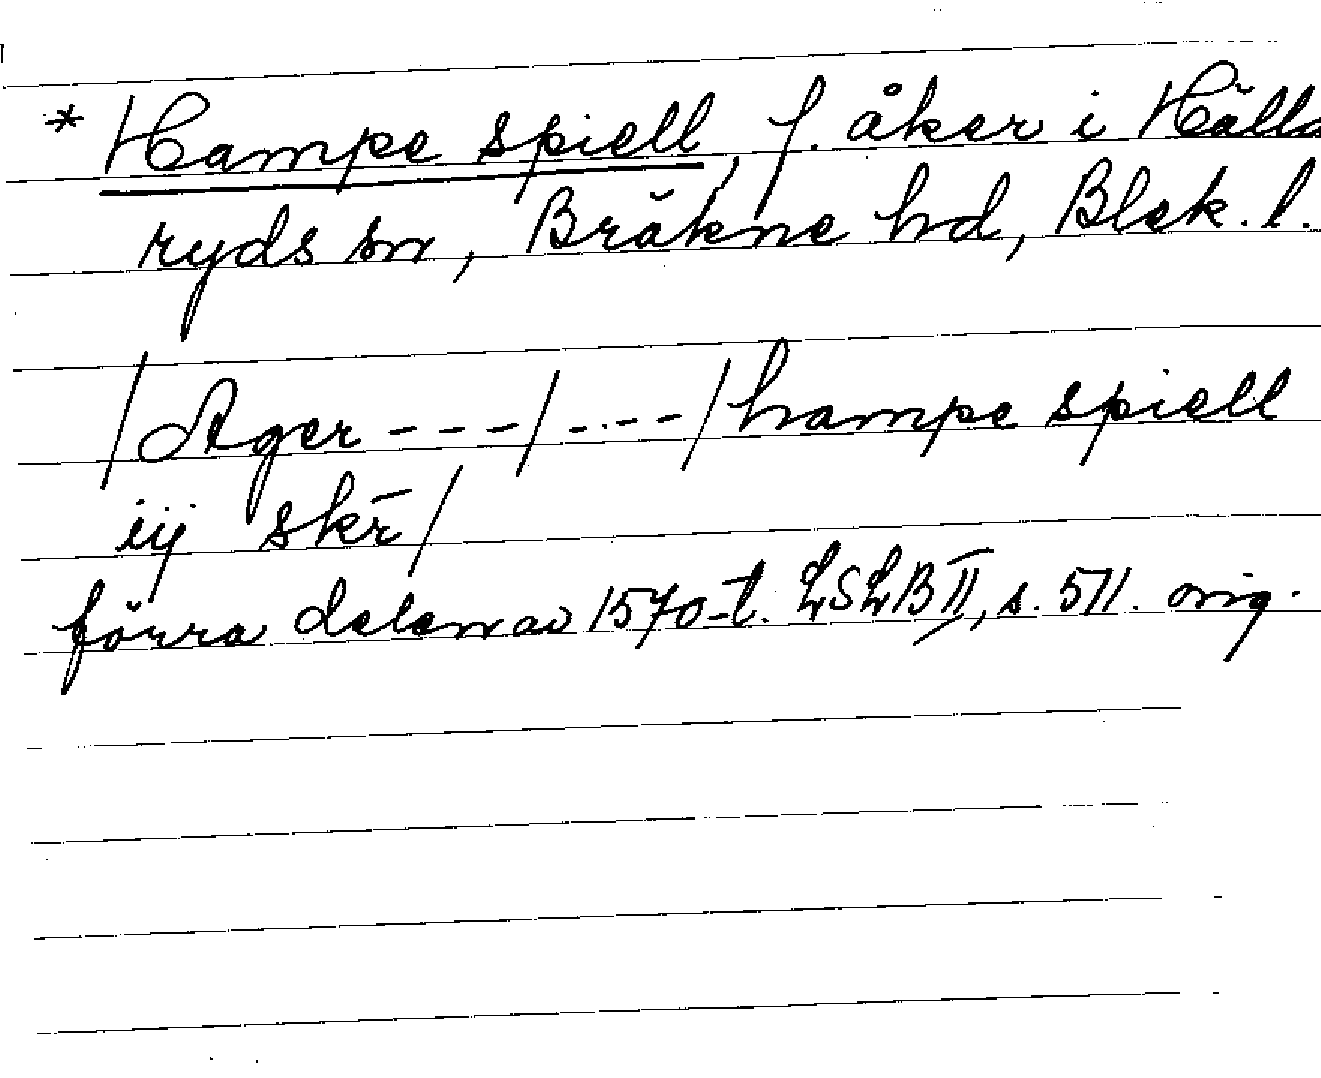 * Hampe spiell, f. åker i Hälla
ryds sn, Bräkne hd, Blek. l.
/Ager - - - / - - - - /hampe spiell
iij skr̄/
förra delen av 1570-t. LSLB II, s. 511. orig.